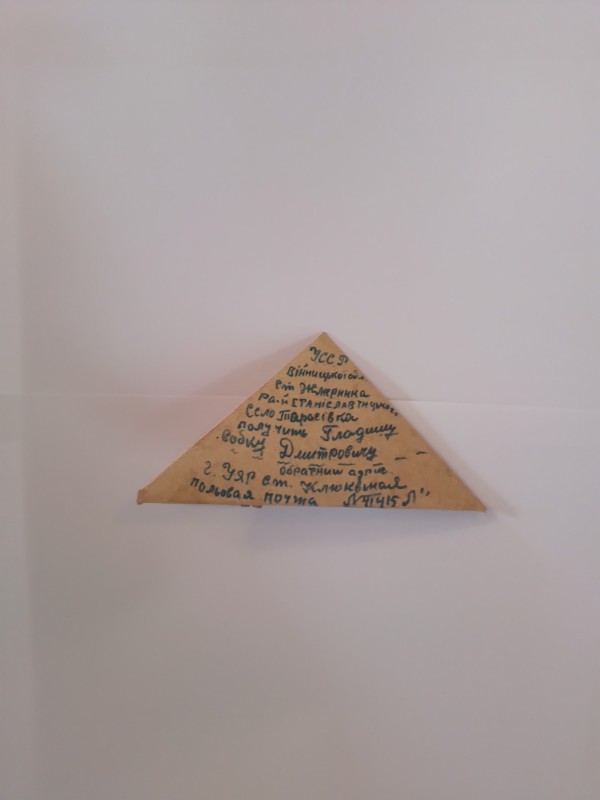 УССР
Вінницкої об.
ст Жмеринка
ра-й Станіславчицк..
Село Тарасівка
получить Гладишу
Вовку Дмитровичу
обратний адре
г. Уяр ст. Клюквеная
польовая почта № 41415 Л"